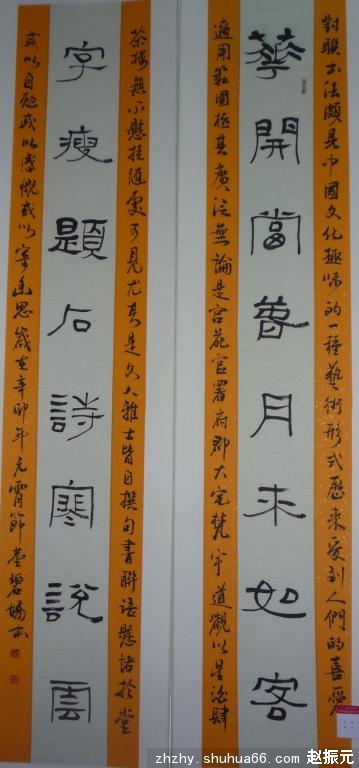 對聯書法頗具中國文化趣味的一種藝術形式歷來受到人們的喜愛
華開當尊月來如客
適用範圍極其廣泛無論是宮苑官署府郡大宅梵宇道觀以至酒肆
茶樓無不懸挂隨處可見尤其是文人雅士皆自撰句書聯語懸諸於堂
字瘦題石詩寒說雲
或以自勉或以感慨或以寄幽思歲在辛卯年元宵節
zhzhy.shuhua66.com 赵振元